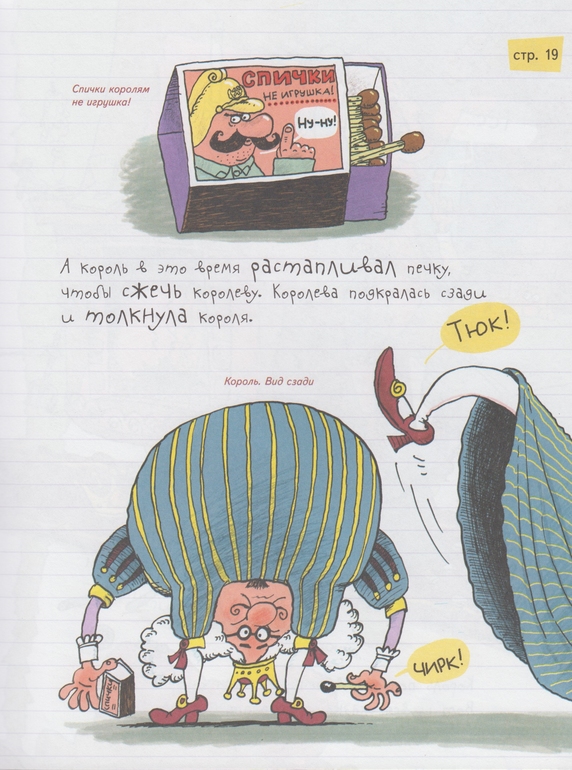 стр. 19
Спички королям
не игрушка!
СПИЧКИ
НЕ ИГРУШКА!
Ну-ну!
А король в это время растапливал печку,
чтобы сжечь королеву. Королева подкралась сзади
и толкнула короля.
Тюк!
Король. Вид сзади
ЧИРК!
СПИЧКИ